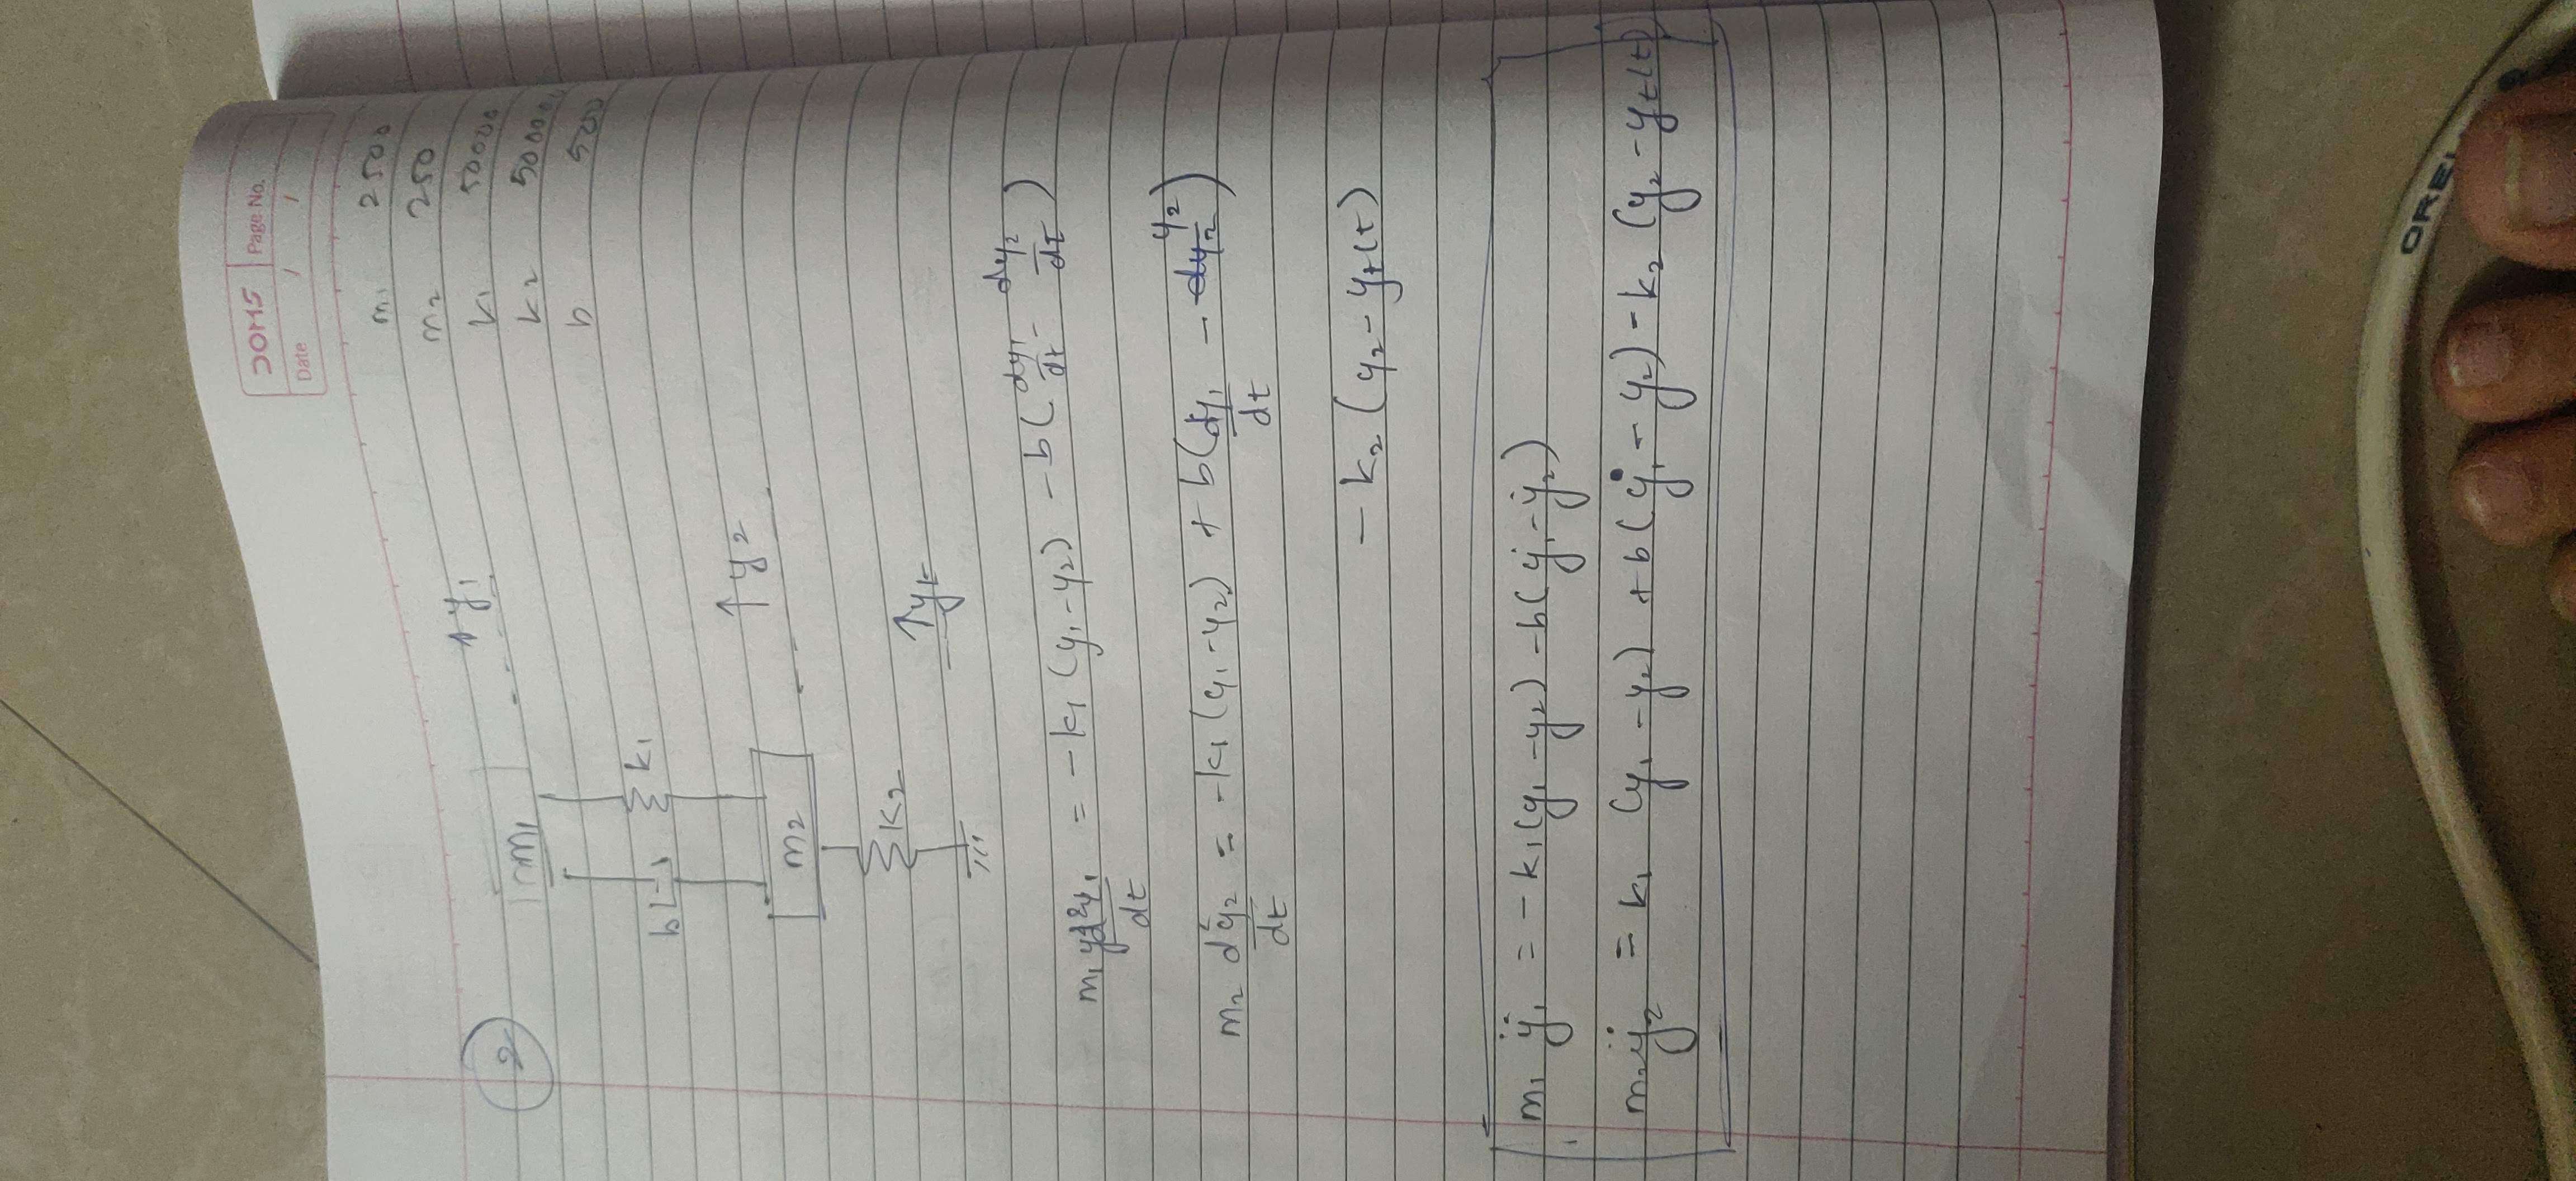 DOMS Page No.
Date / /
m₁ 2500
m₂ 250
k₁ 50000
k₂
b 500
2
m₁
↑y₁
b k₁
m₂
↑y₂
k₂
↑yt
m₁ d²y₁/dt = -k₁ (y₁-y₂) -b(dy₁/dt - dy₂/dt)
m₂ d²y₂/dt = -k₁ (y₁-y₂) + b(dy₁/dt - y₂)
- k₂ (y₂ - yt(t)
m₁ ÿ₁ = -k₁(y₁-y₂) -b(ẏ₁-ẏ₂)
m₂ÿ₂ = k₁ (y₁-y₂) +b(ẏ₁- y₂) -k₂ (y₂-yt(t)